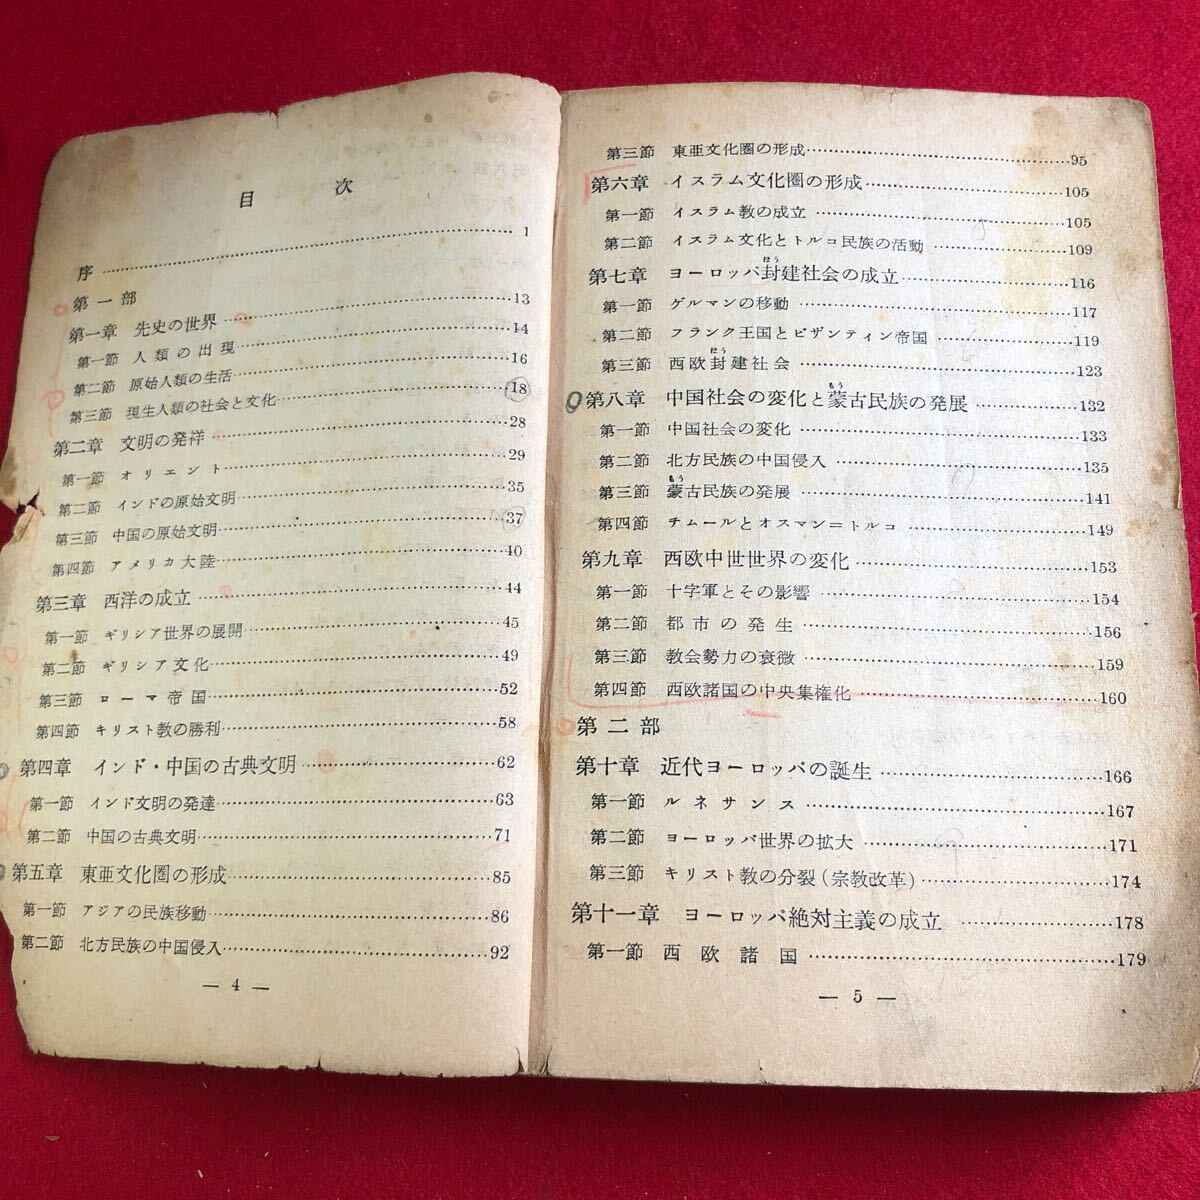 目次
序……1
第一部
第一章 先史の世界……13
第一節 人類の出現……14
第二節 原始人類の生活……16
第三節 現生人類の社会と文化……18
第二章 文明の発祥……28
第一節 オリエント……29
第二節 インドの原始文明……35
第三節 中国の原始文明……37
第四節 アメリカ大陸……40
第三章 西洋の成立……44
第一節 ギリシア世界の展開……45
第二節 ギリシア文化……49
第三節 ローマ帝国……52
第四節 キリスト教の勝利……58
第四章 インド・中国の古典文明……62
第一節 インド文明の発達……63
第二節 中国の古典文明……71
第五章 東亜文化圏の形成……85
第一節 アジアの民族移動……86
第二節 北方民族の中国侵入……92
— 4 —
第三節 東亜文化圏の形成……95
第六章 イスラム文化圏の形成……105
第一節 イスラム教の成立……105
第二節 イスラム文化とトルコ民族の活動……109
ほう
第七章 ヨーロッパ封建社会の成立……116
第一節 ゲルマンの移動……117
第二節 フランク王国とビザンティン帝国……119
ほう
第三節 西欧封建社会……123
もう
第八章 中国社会の変化と蒙古民族の発展……132
第一節 中国社会の変化……133
第二節 北方民族の中国侵入……135
もう
第三節 蒙古民族の発展……141
第四節 チムールとオスマン=トルコ……149
第九章 西欧中世世界の変化……153
第一節 十字軍とその影響……154
第二節 都市の発生……156
第三節 教会勢力の衰微……159
第四節 西欧諸国の中央集権化……160
第二部
第十章 近代ヨーロッパの誕生……166
第一節 ルネサンス……167
第二節 ヨーロッパ世界の拡大……171
第三節 キリスト教の分裂(宗教改革)……174
第十一章 ヨーロッパ絶対主義の成立……178
第一節 西欧諸国……179
— 5 —